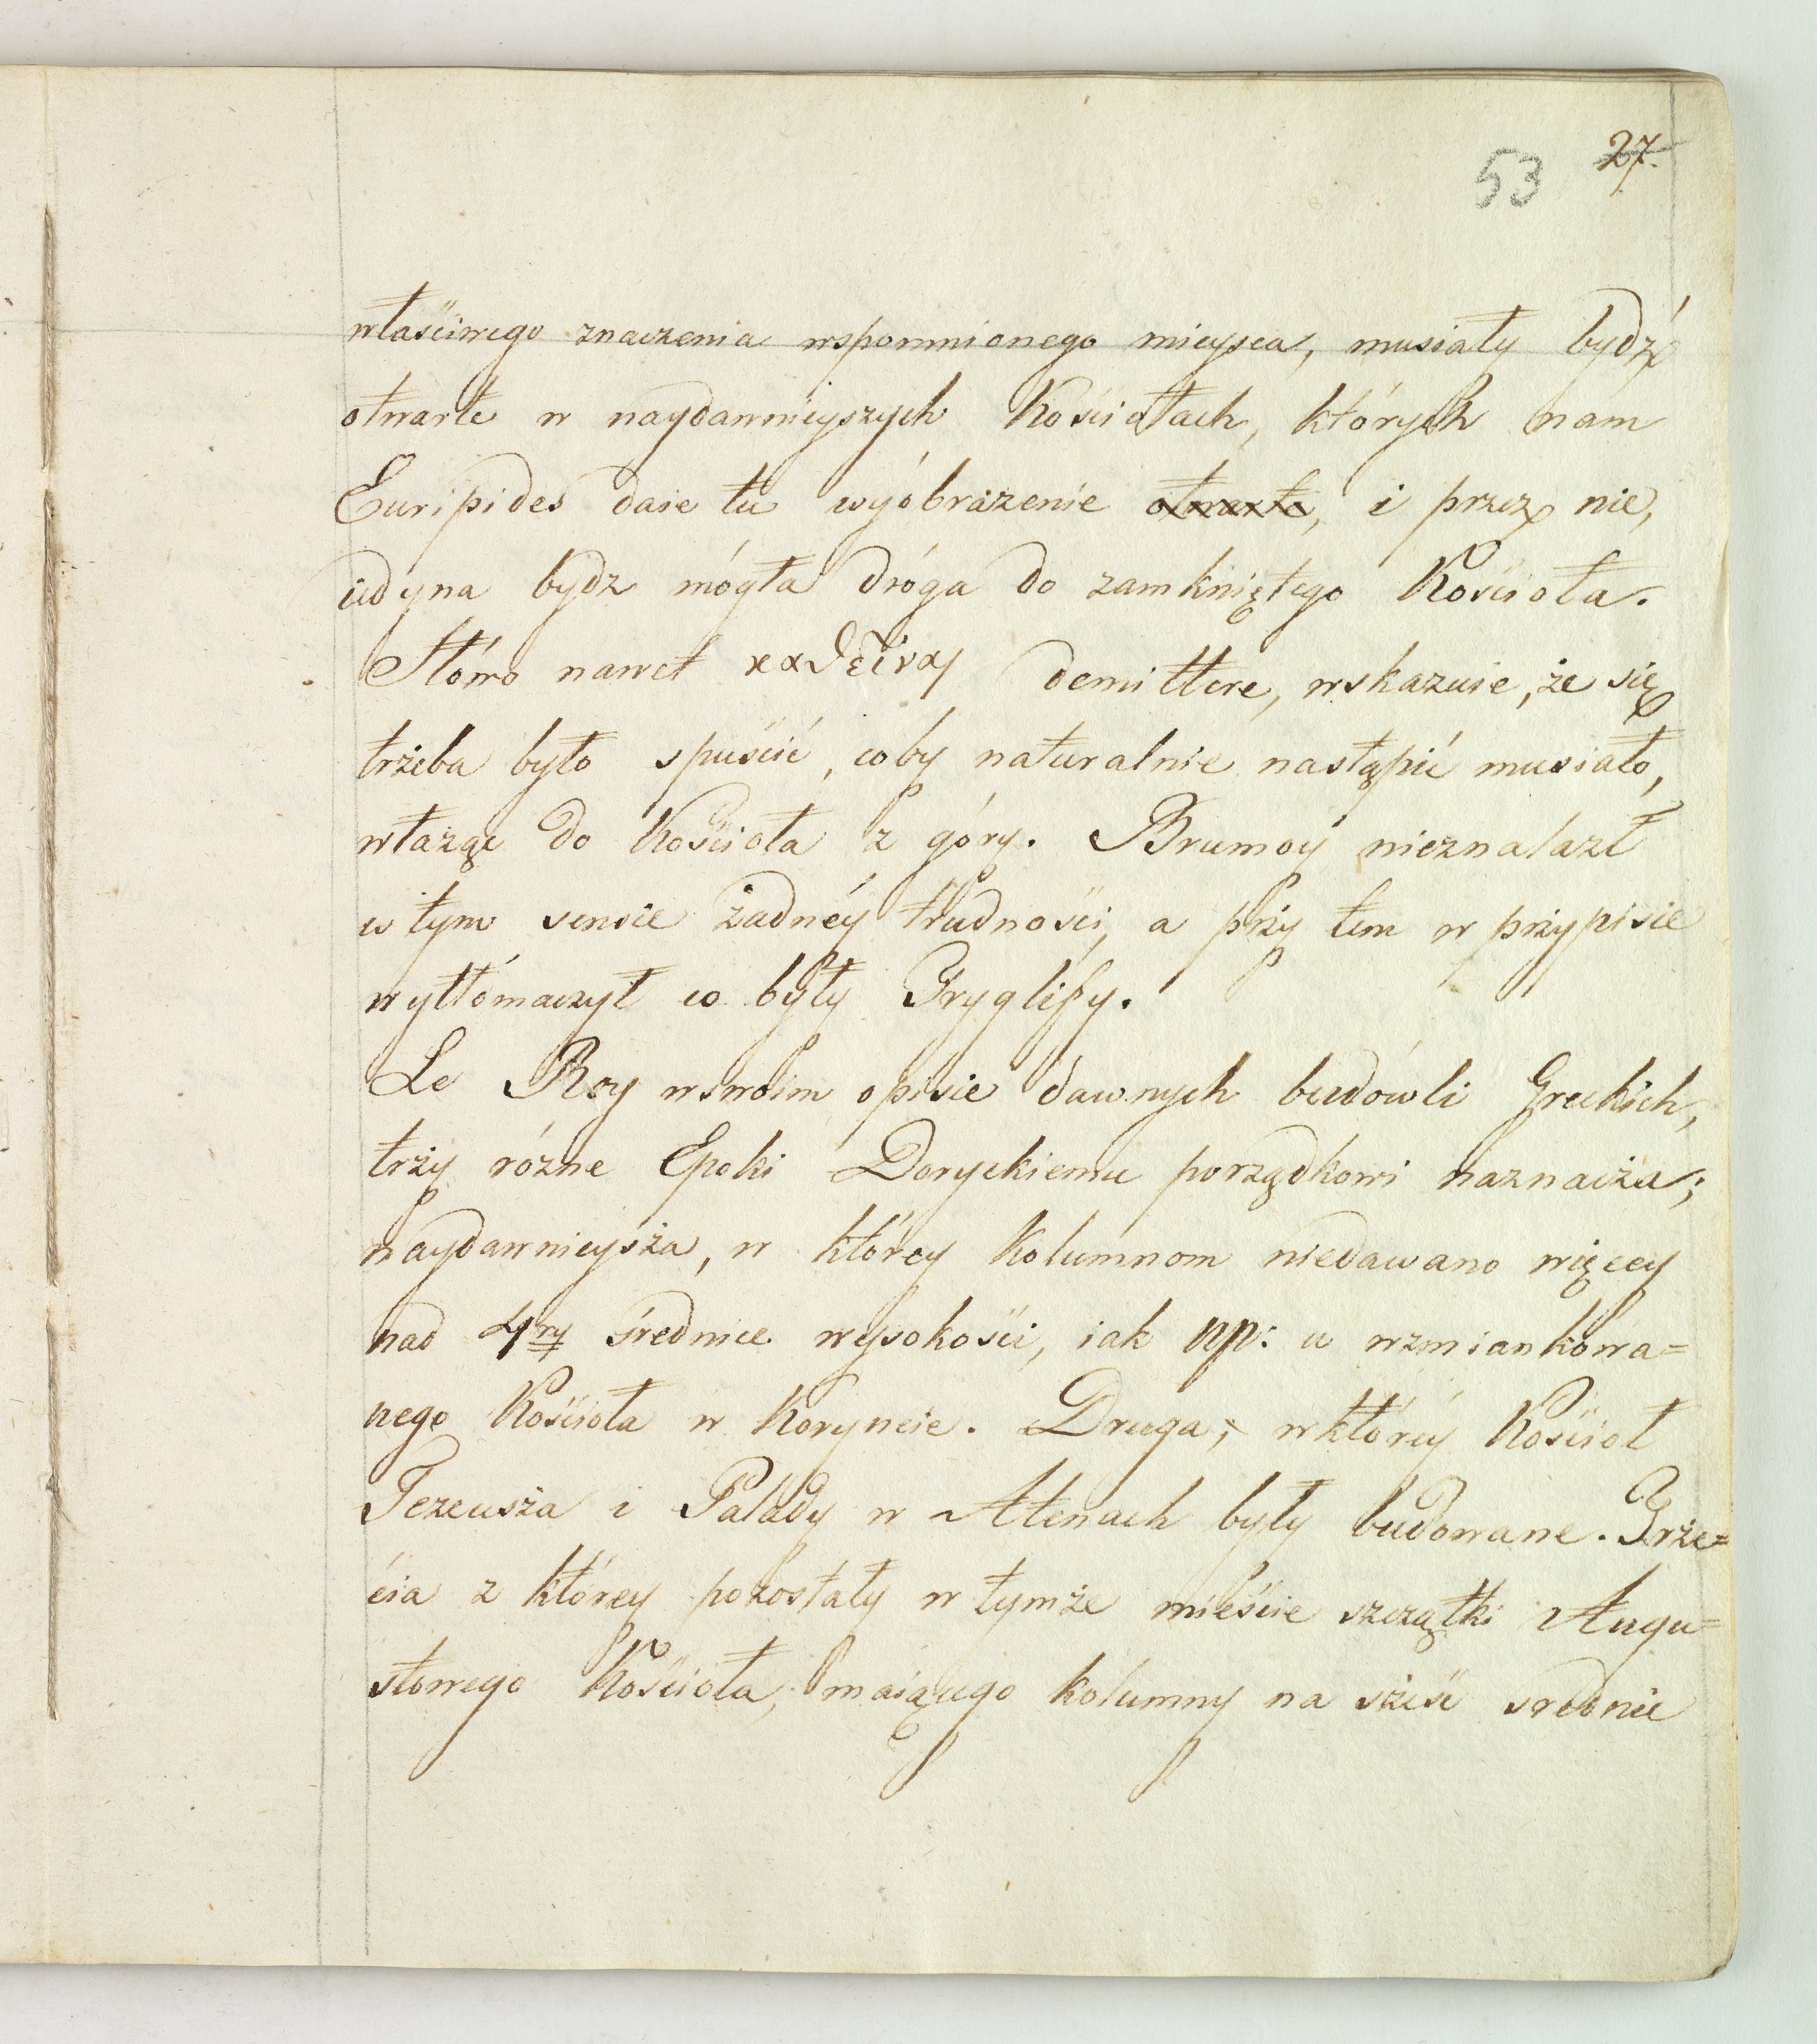 53 27.
właściwego znaczenia wspomnionego mieysca, musiały bydź
otwarte w naydawnieyszych Kościołach, których nam
Euripides daie tu wyóbrażenie otwarte, i przez nie,
iedyna bydz mógła dróga do zamkniętego Kościoła.
Słówo nawet καθεῖναι demittere, wskazuie, że się
trzeba było spuścić, coby naturalnie nastąpić musiało,
włażąc do Kościoła z góry. Brumoy nieznalazł
w tym sensie żadnéy trudności, a przy tem w przypisie
wytłómaczył co były Tryglify.
Le Roy wswoim opisie dawnych budówli Greckich,
trzy rózne Epoki Doryckiemu porządkowi naznacza;
naydawnieysza, w którey Kolumnom niedawano więcey
nad 4ry średnice wysokości, iak np: u wzmiankowa=
nego Kościoła w Koryncie. Druga, w którey Kościoł
Tezeusza i Pallady w Atenach były budowane. Trze=
cia z którey pozostały w tymże mieście szczątki Augu=
stowego Kościoła, maiącego kolumny na sześć srednic